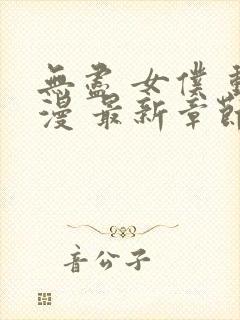 無盡 女僕 動
漫 最新章節
音公子